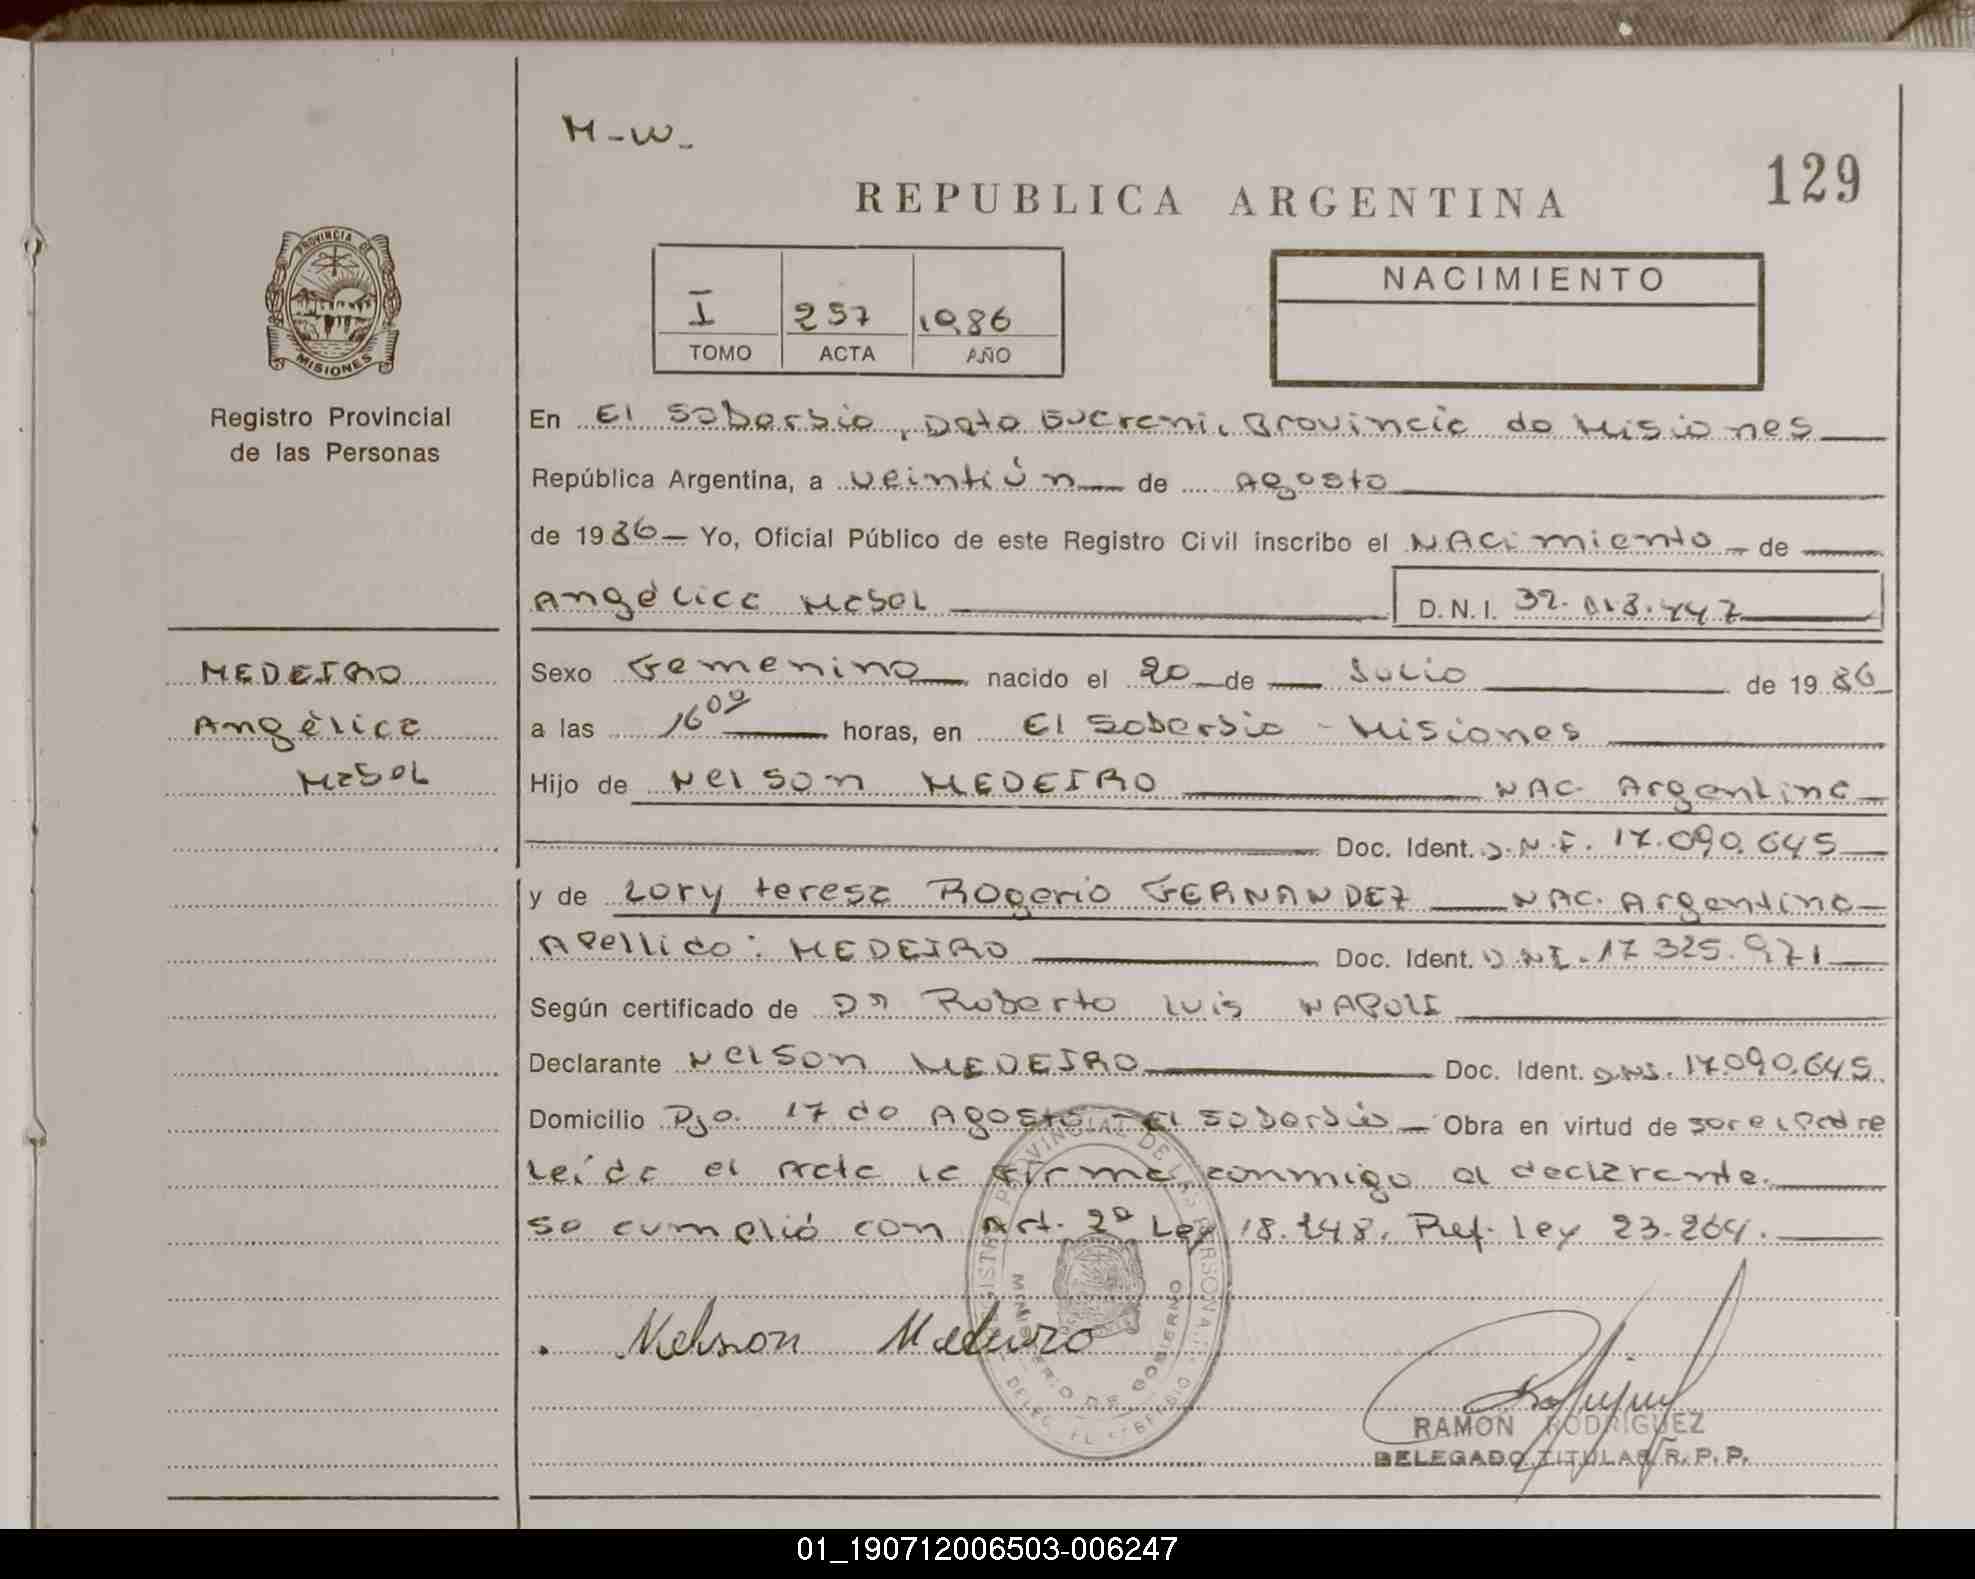 M-W-
129
REPUBLICA ARGENTINA
PROVINCIA DE
MISIONES
Registro Provincial
de las Personas
I 257 1986
TOMO ACTA AÑO
NACIMIENTO
En El Soberbio, Dpto Guarani, Provincia de Misiones
República Argentina, a veintiún de Agosto
de 1986 Yo, Oficial Público de este Registro Civil inscribo el NAcimiento de
Angélica Masol D.N.I. 32.013.447
MEDEIRO
Angélica
Masol
Sexo Femenino nacido el 20 de Julio de 1986
a las 16 horas, en El Soberbio - Misiones
Hijo de Nelson MEDEIRO NAC. Argentina
Doc. Ident. D.N.I. 17.090.645
y de Lory teresa Rogerio FERNANDEZ NAC. Argentina
Apellido: MEDEIRO Doc. Ident. D.N.I. 17 325.971
Según certificado de Dr Roberto Luis NAPOLI
Declarante Nelson MEDEIRO Doc. Ident. D.N.I. 17.090.645
Domicilio Pje. 17 de Agosto - El Soberbio Obra en virtud de ser el padre
Leída el Acta la firma conmigo el declarante.
se cumplió con Art. 2º Ley 18.248. Ref. Ley 23.264.
Nelson Medeiro
REGISTRO PROVINCIAL DE LAS PERSONAS
MINISTERIO DE GOBIERNO
DELEG. EL SOBERBIO
RAMON RODRIGUEZ
DELEGADO TITULAR R.P.P.
01_190712006503-006247